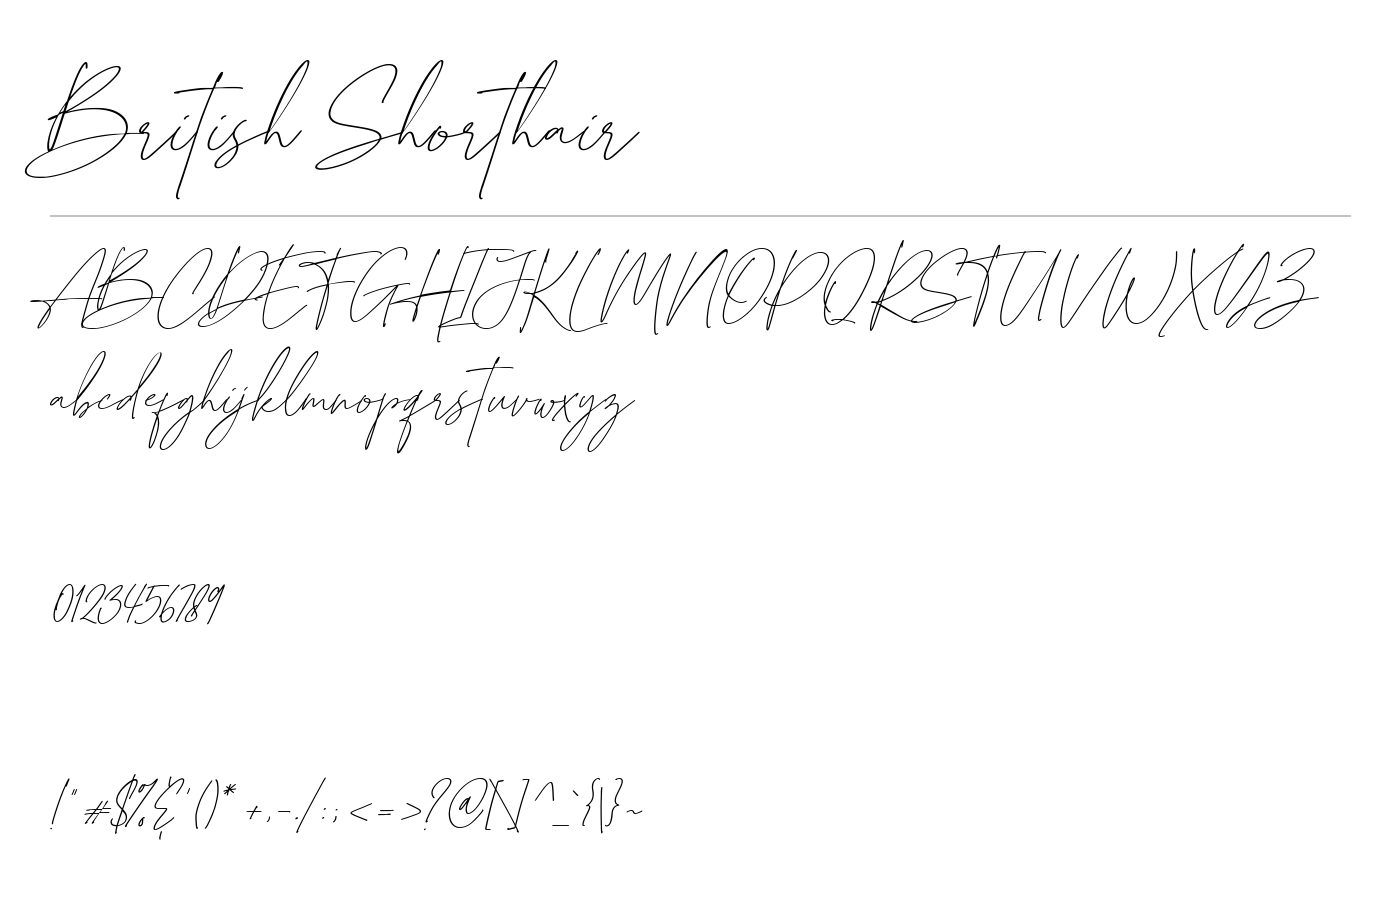 British Shorthair
ABCDEFGHIJKLMNOPQRSTUVWXYZ
abcdefghijklmnopqrstuvwxyz
0123456789
!"#$%&'()*+,-./:;<=>?@[\]^_`{|}~